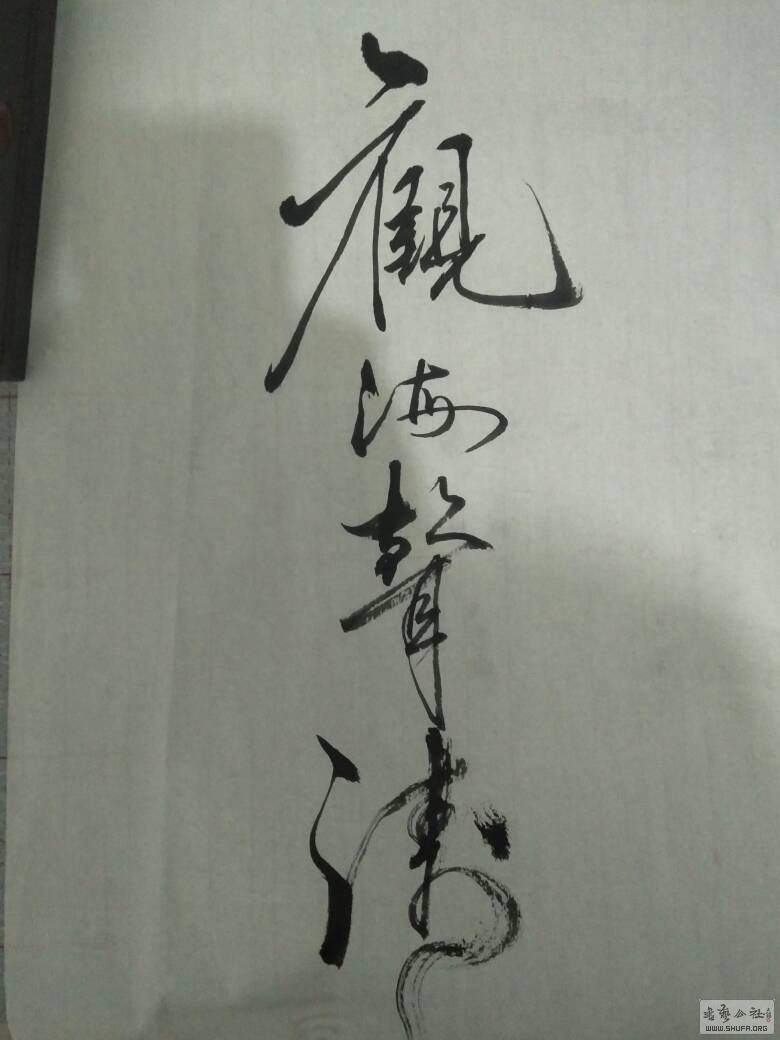 觀海聲濤
書藝公社
WWW.SHUFA.ORG